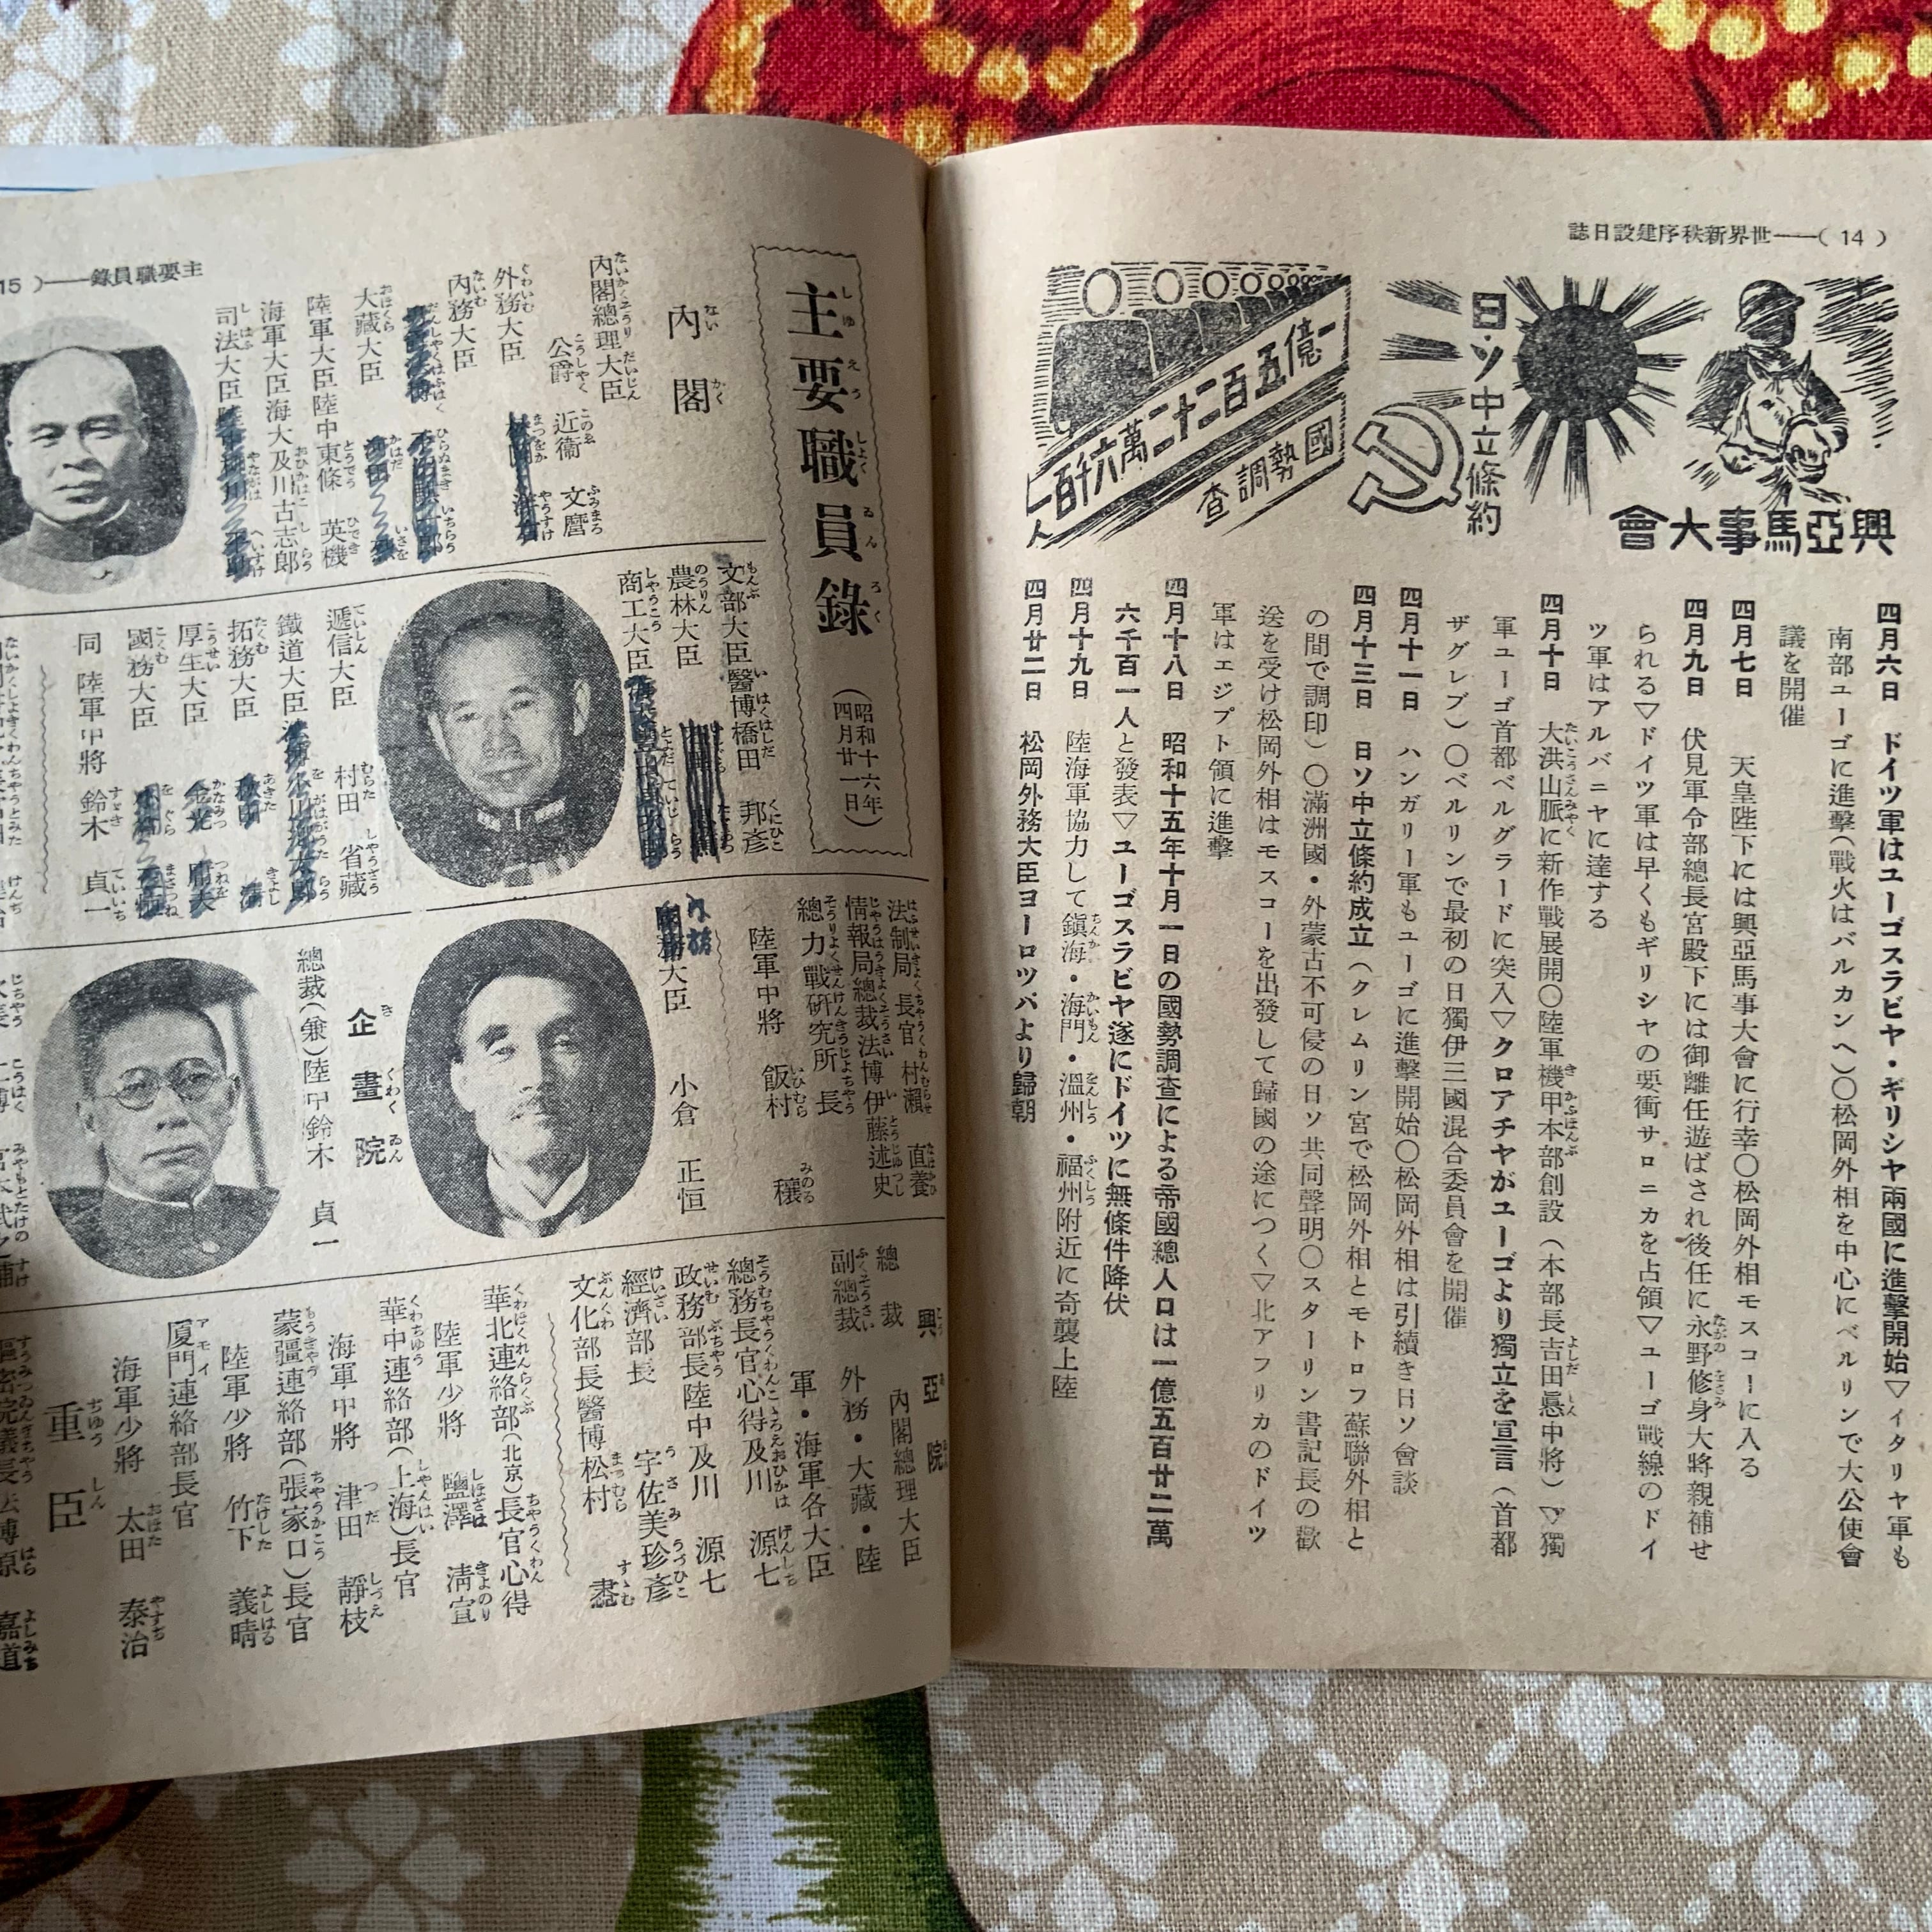 (14)——世界新秩序建設日誌
興亞馬事大會
日・ソ中立條約
一億五百二十二萬六千百一人
國勢調査
四月六日 ドイツ軍はユーゴスラビヤ・ギリシヤ兩國に進擊開始▽イタリヤ軍も
南部ユーゴに進擊(戰火はバルカンへ)〇松岡外相を中心にベルリンで大公使會
議を開催
四月七日 天皇陛下には興亞馬事大會に行幸〇松岡外相モスコーに入る
四月九日 伏見軍令部總長宮殿下には御離任遊ばされ後任に永野修身大將親補せ
られる▽ドイツ軍は早くもギリシヤの要衝サロニカを占領▽ユーゴ戰線のドイ
ツ軍はアルバニヤに達する
四月十日 大洪山脈に新作戰展開〇陸軍機甲本部創設(本部長吉田悳中將)▽獨
軍ユーゴ首都ベルグラードに突入▽クロアチヤがユーゴより獨立を宣言(首都
ザグレブ)〇ベルリンで最初の日獨伊三國混合委員會を開催
四月十一日 ハンガリー軍もユーゴに進擊開始〇松岡外相は引續き日ソ會談
四月十三日 日ソ中立條約成立(クレムリン宮で松岡外相とモトロフ蘇聯外相と
の間で調印)〇滿洲國・外蒙古不可侵の日ソ共同聲明〇スターリン書記長の歡
送を受け松岡外相はモスコーを出發して歸國の途につく▽北アフリカのドイツ
軍はエジプト領に進擊
四月十八日 昭和十五年十月一日の國勢調査による帝國總人口は一億五百廿二萬
六千百一人と發表▽ユーゴスラビヤ遂にドイツに無條件降伏
四月十九日 陸海軍協力して鎭海・海門・溫州・福州附近に奇襲上陸
四月廿二日 松岡外務大臣ヨーロツパより歸朝
15)——主要職員錄
主要職員錄(昭和十六年四月廿一日)
內閣
內閣總理大臣
公爵 近衞 文麿
外務大臣 松岡 洋右
內務大臣
大藏大臣
陸軍大臣陸中東條 英機
海軍大臣海大及川古志郎
司法大臣
文部大臣醫博橋田 邦彥
農林大臣
商工大臣
遞信大臣 村田 省藏
鐵道大臣
拓務大臣 秋田 淸
厚生大臣 金光 庸夫
國務大臣
同 陸軍中將 鈴木 貞一
法制局長官 村瀨 直養
情報局總裁法博 伊藤述史
總力戰硏究所長
陸軍中將 飯村 穰
大臣 小倉 正恒
企畫院
總裁(兼)陸中鈴木 貞一
興亞院
總裁 內閣總理大臣
副總裁 外務・大藏・陸
軍・海軍各大臣
總務長官心得及川 源七
政務部長陸中及川 源七
經濟部長 宇佐美珍彥
文化部長醫博松村 𧸐
華北連絡部(北京)長官心得
陸軍少將 鹽澤 淸宣
華中連絡部(上海)長官
海軍中將 津田 靜枝
蒙疆連絡部(張家口)長官
陸軍少將 竹下 義晴
厦門連絡部長官
海軍少將 太田 泰治
重臣
樞密院議長法博原 嘉道